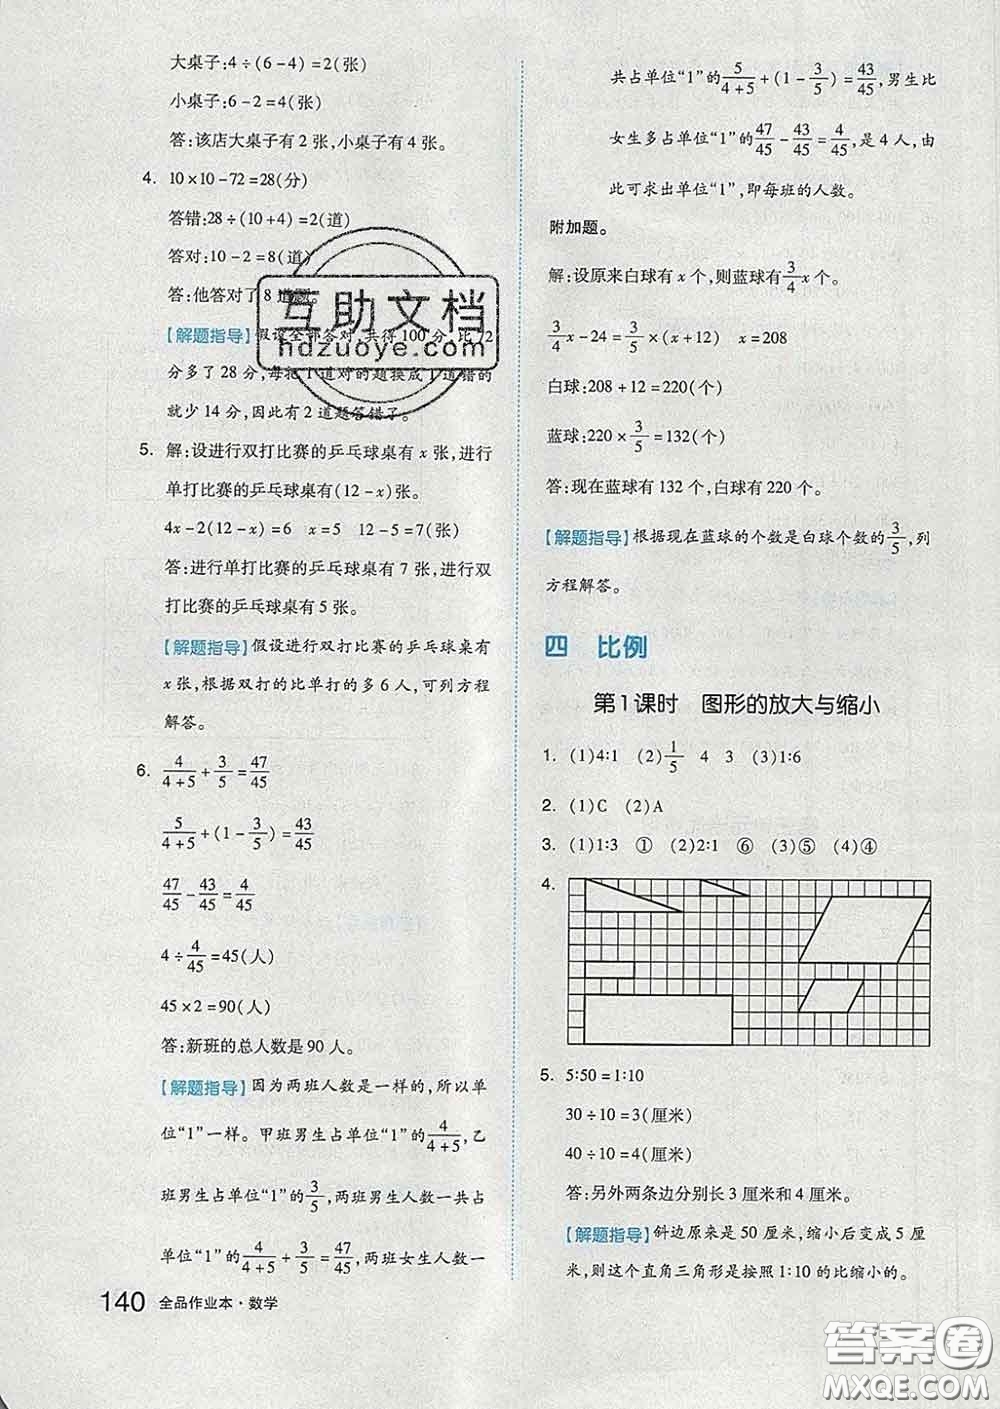 大桌子:4÷(6-4)=2(张)
小桌子:6-2=4(张)
答:该店大桌子有 2 张,小桌子有 4 张。
4. 10×10-72=28(分)
答错:28÷(10+4)=2(道)
答对:10-2=8(道)
答:他答对了 8 道题。
【解题指导】假设全部答对,共得 100 分,比 72
分多了 28 分,每把 1 道对的题换成 1 道错的
就少 14 分,因此有 2 道题答错了。
5. 解:设进行双打比赛的乒乓球桌有 x 张,进行
单打比赛的乒乓球桌有(12-x)张。
4x-2(12-x)=6 x=5 12-5=7(张)
答:进行单打比赛的乒乓球桌有 7 张,进行双
打比赛的乒乓球桌有 5 张。
【解题指导】假设进行双打比赛的乒乓球桌有
x 张,根据双打的比单打的多 6 人,可列方程
解答。
6. 4/(4+5)+3/5=47/45
5/(4+5)+(1-3/5)=43/45
47/45-43/45=4/45
4÷4/45=45(人)
45×2=90(人)
答:新班的总人数是 90 人。
【解题指导】因为两班人数是一样的,所以单
位“1”一样。甲班男生占单位“1”的4/(4+5),乙
班男生占单位“1”的3/5,两班男生人数一共占
单位“1”的4/(4+5)+3/5=47/45,两班女生人数一
140 全品作业本·数学
共占单位“1”的5/(4+5)+(1-3/5)=43/45,男生比
女生多占单位“1”的47/45-43/45=4/45,是 4 人,由
此可求出单位“1”,即每班的人数。
附加题。
解:设原来白球有 x 个,则蓝球有3/4x 个。
3/4x-24=3/5×(x+12) x=208
白球:208+12=220(个)
蓝球:220×3/5=132(个)
答:现在蓝球有 132 个,白球有 220 个。
【解题指导】根据现在蓝球的个数是白球个数的3/5,列
方程解答。
四 比例
第 1 课时 图形的放大与缩小
1. (1)4:1 (2)1/5 4 3 (3)1:6
2. (1)C (2)A
3. (1)1:3 ① (2)2:1 ⑥ (3)⑤ (4)④
4.
5. 5:50=1:10
30÷10=3(厘米)
40÷10=4(厘米)
答:另外两条边分别长 3 厘米和 4 厘米。
【解题指导】斜边原来是 50 厘米,缩小后变成 5 厘
米,则这个直角三角形是按照 1:10 的比缩小的。
互助文档
hdzuoye.com
答案圈
MXQE.COM